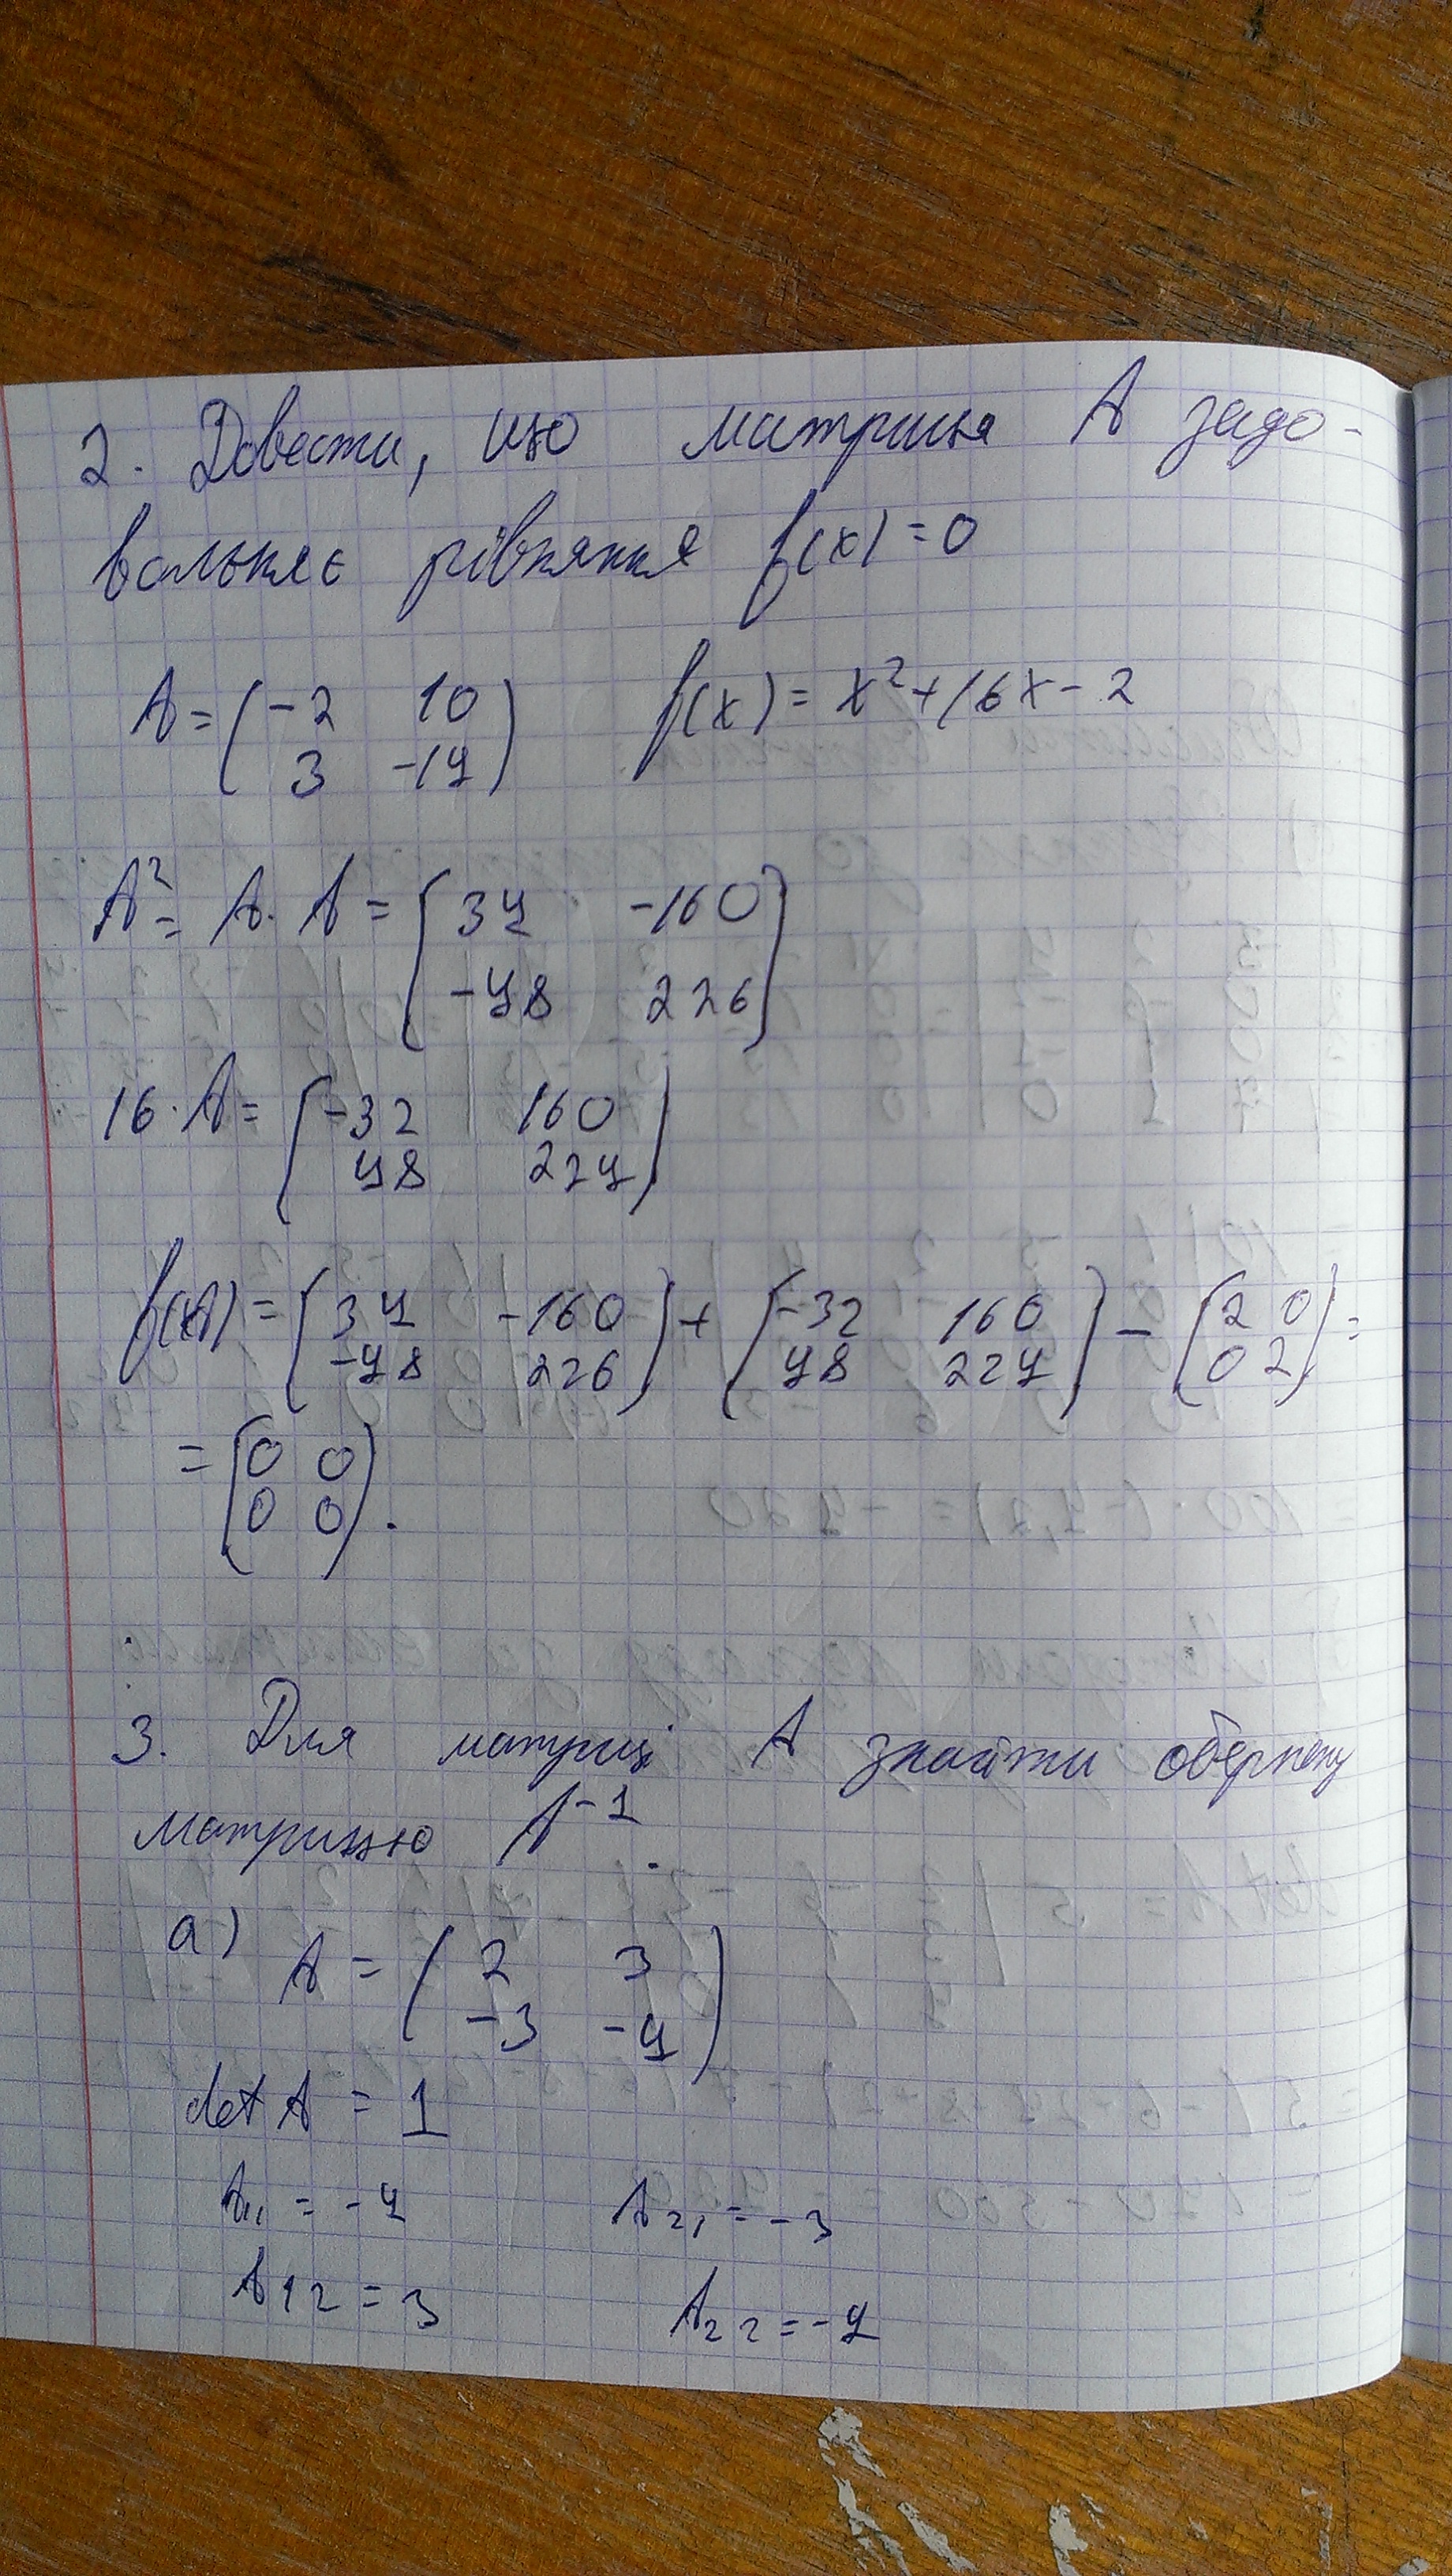 2. Довести, що матриця A задо-
вольняє рівняння f(x) = 0
A = ( -2 10 ) f(x) = x² + 16x - 2
( 3 -14 )
A² = A · A = ( 34 -160 )
( -48 226 )
16 · A = ( -32 160 )
( 48 224 )
f(A) = ( 34 -160 ) + ( -32 160 ) - ( 2 0 ) =
( -48 226 ) ( 48 224 ) ( 0 2 )
= ( 0 0 )
( 0 0 ) .
3. Для матриці A знайти обернену
матрицю A⁻¹.
a) A = ( 2 3 )
( -3 -4 )
det A = 1
A₁₁ = -4 A₂₁ = -3
A₁₂ = 3 A₂₂ = -4